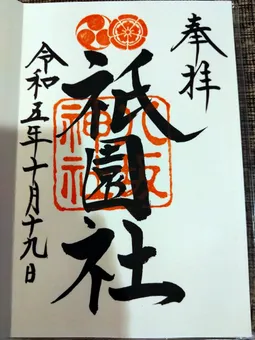 奉拝
祇園社
八坂神社
令和五年十月十九日